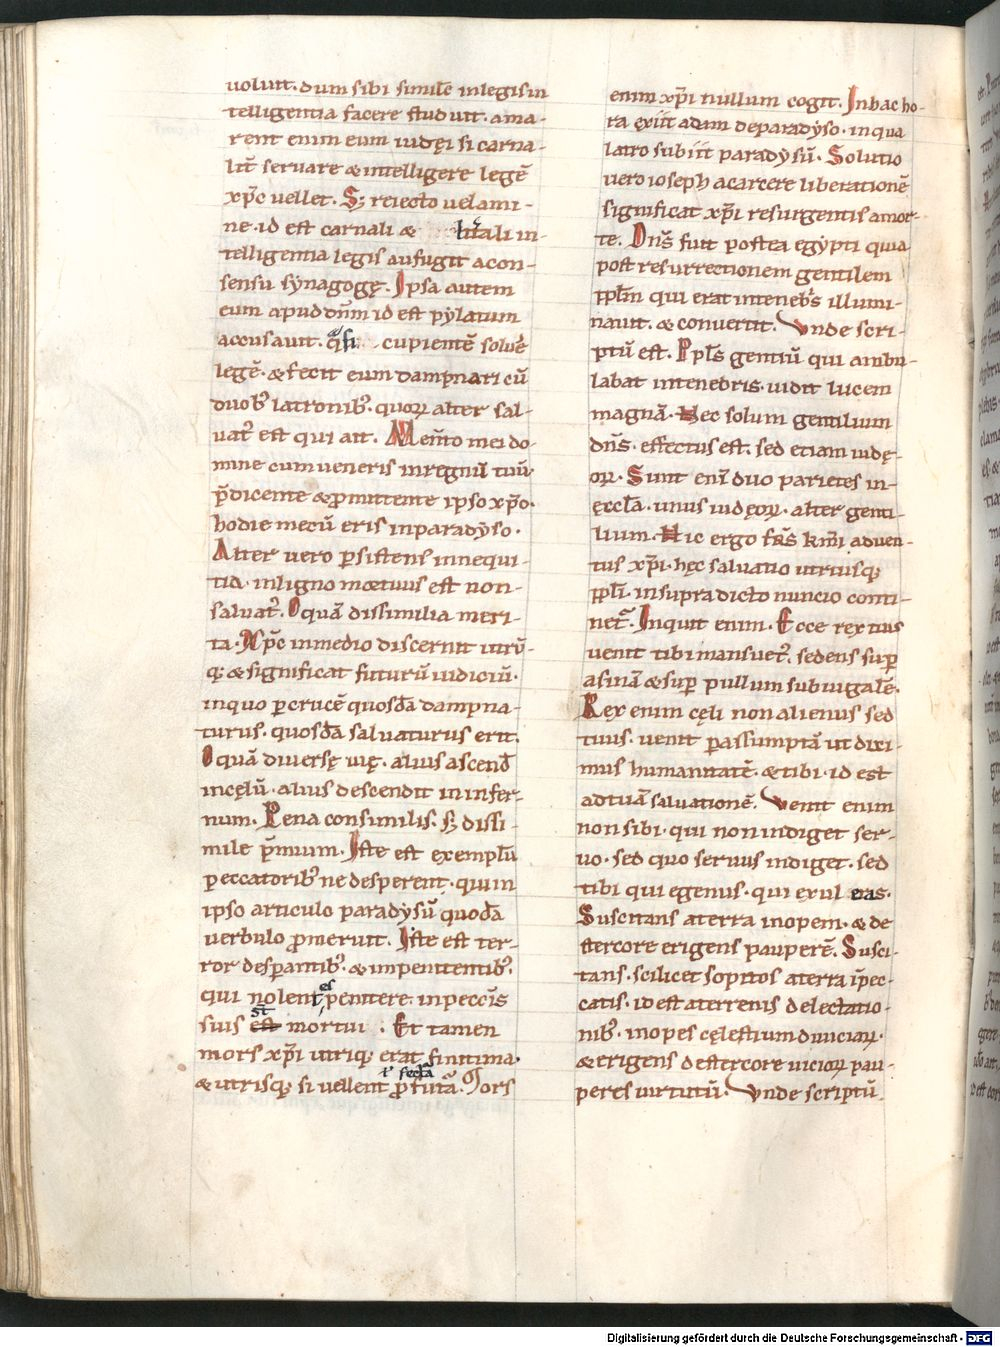 uoluit. dum sibi simile͞ in legis in
telligentia facere studuit. ama-
rent enim eum iudęi si carna-
lit̃ seruare & intelligere legē
xp̄c uellet. S; reiecto uelami-
ne. id est carnali & litt̃ali in-
telligentia legis aufugit a con-
sensu synagogę. Ipsa autem
eum apud dn̄m id est pylatum
accusauit. q̃si cupientē soluẽ
legē. & fecit eum dampnari cū
duobꝰ latronibꝰ. quoꝝ alter sal-
uatꝰ est qui ait. Mem̄to mei do-
mine cum ueneris in regnū tuū.
p̄dicente & ꝓmittente ipso xp̄o.
hodie mecū eris in paradyso.
Alter uero ꝑsistens in nequi-
tia. in ligno mortuus est non
saluatꝰ. O quā dissimilia meri-
ta. Xp̄c in medio discernit utrū-
q; & significat futurū iudiciū.
in quo ꝑ crucē quosdā dampna-
turus. quosdā saluaturus erit.
O quā diuersę uię. alius ascend̃
in cęlū. alius descendit in infer-
num. Pena consimilis. s; dissi-
mile p̄mium. Iste est exemplū
peccatoribꝰ ne desperent. qui in
ipso articulo paradysū quodā
uerbulo ꝓmeruit. Iste est ter-
ror desꝑantibꝰ. & inpenitentibꝰ.
es
qui nolent penitere in pecc̄is
st̄
suis est mortui. Et tamen
mors xp̄i utriq; erat finitima.
ł secła
& utrisq; si uellent ꝓfutā. Iors
enim xp̄i nullum cogit. In hac ho-
ra exiit adam de paradyso. in qua
latro subiit paradysū. Solutio
uero ioseph a carcere liberationē
significat xp̄i resurgentis a mor-
te. Dn̄s fuit postea egypti quia
post resurrectionem gentilem
ppłm qui erat in tenebꝰs illumi-
nauit. & conuertit. Vnde scri-
ptū est. Ppłs gentiū qui ambu-
labat in tenebris. uidit lucem
magnā. Nec solum gentilium
dn̄s. effectus est. sed etiam iudę-
oꝝ. Sunt eni͞ duo parietes in
ęccła. unus iudęoꝝ. alter genti-
lium. Hic ergo frs̄ kmi̅ aduen-
tus xp̄i. hęc saluatio utriusq;
ppłi. in supra dicto nuncio conti-
netꝰ. Inquit enim. Ecce rex tuus
uenit tibi mansuetꝰ. sedens suꝑ
asinā & suꝑ pullum subiugalē.
Rex enim cęli non alienus sed
tuus. uenit ꝑ assumptā ut dixi-
mus humanitatē. & tibi. id est
ad tuā saluationē. Venit enim
non sibi. qui non indiget ser-
uo. sed quo seruus indiget. sed
tibi qui egenus. qui exul eras.
Suscitans a terra inopem. & de
stercore erigens pauperē. Susci-
tans. scilicet sopitos a terra i͞ pec-
catis. id est a terrenis delectatio-
nibꝰ. inopes cęlestium diuiciaꝝ.
& erigens de stercore uicioꝝ pau-
peres uirtutū. Vnde scriptū.
Digitalisierung gefördert durch die Deutsche Forschungsgemeinschaft - DFG